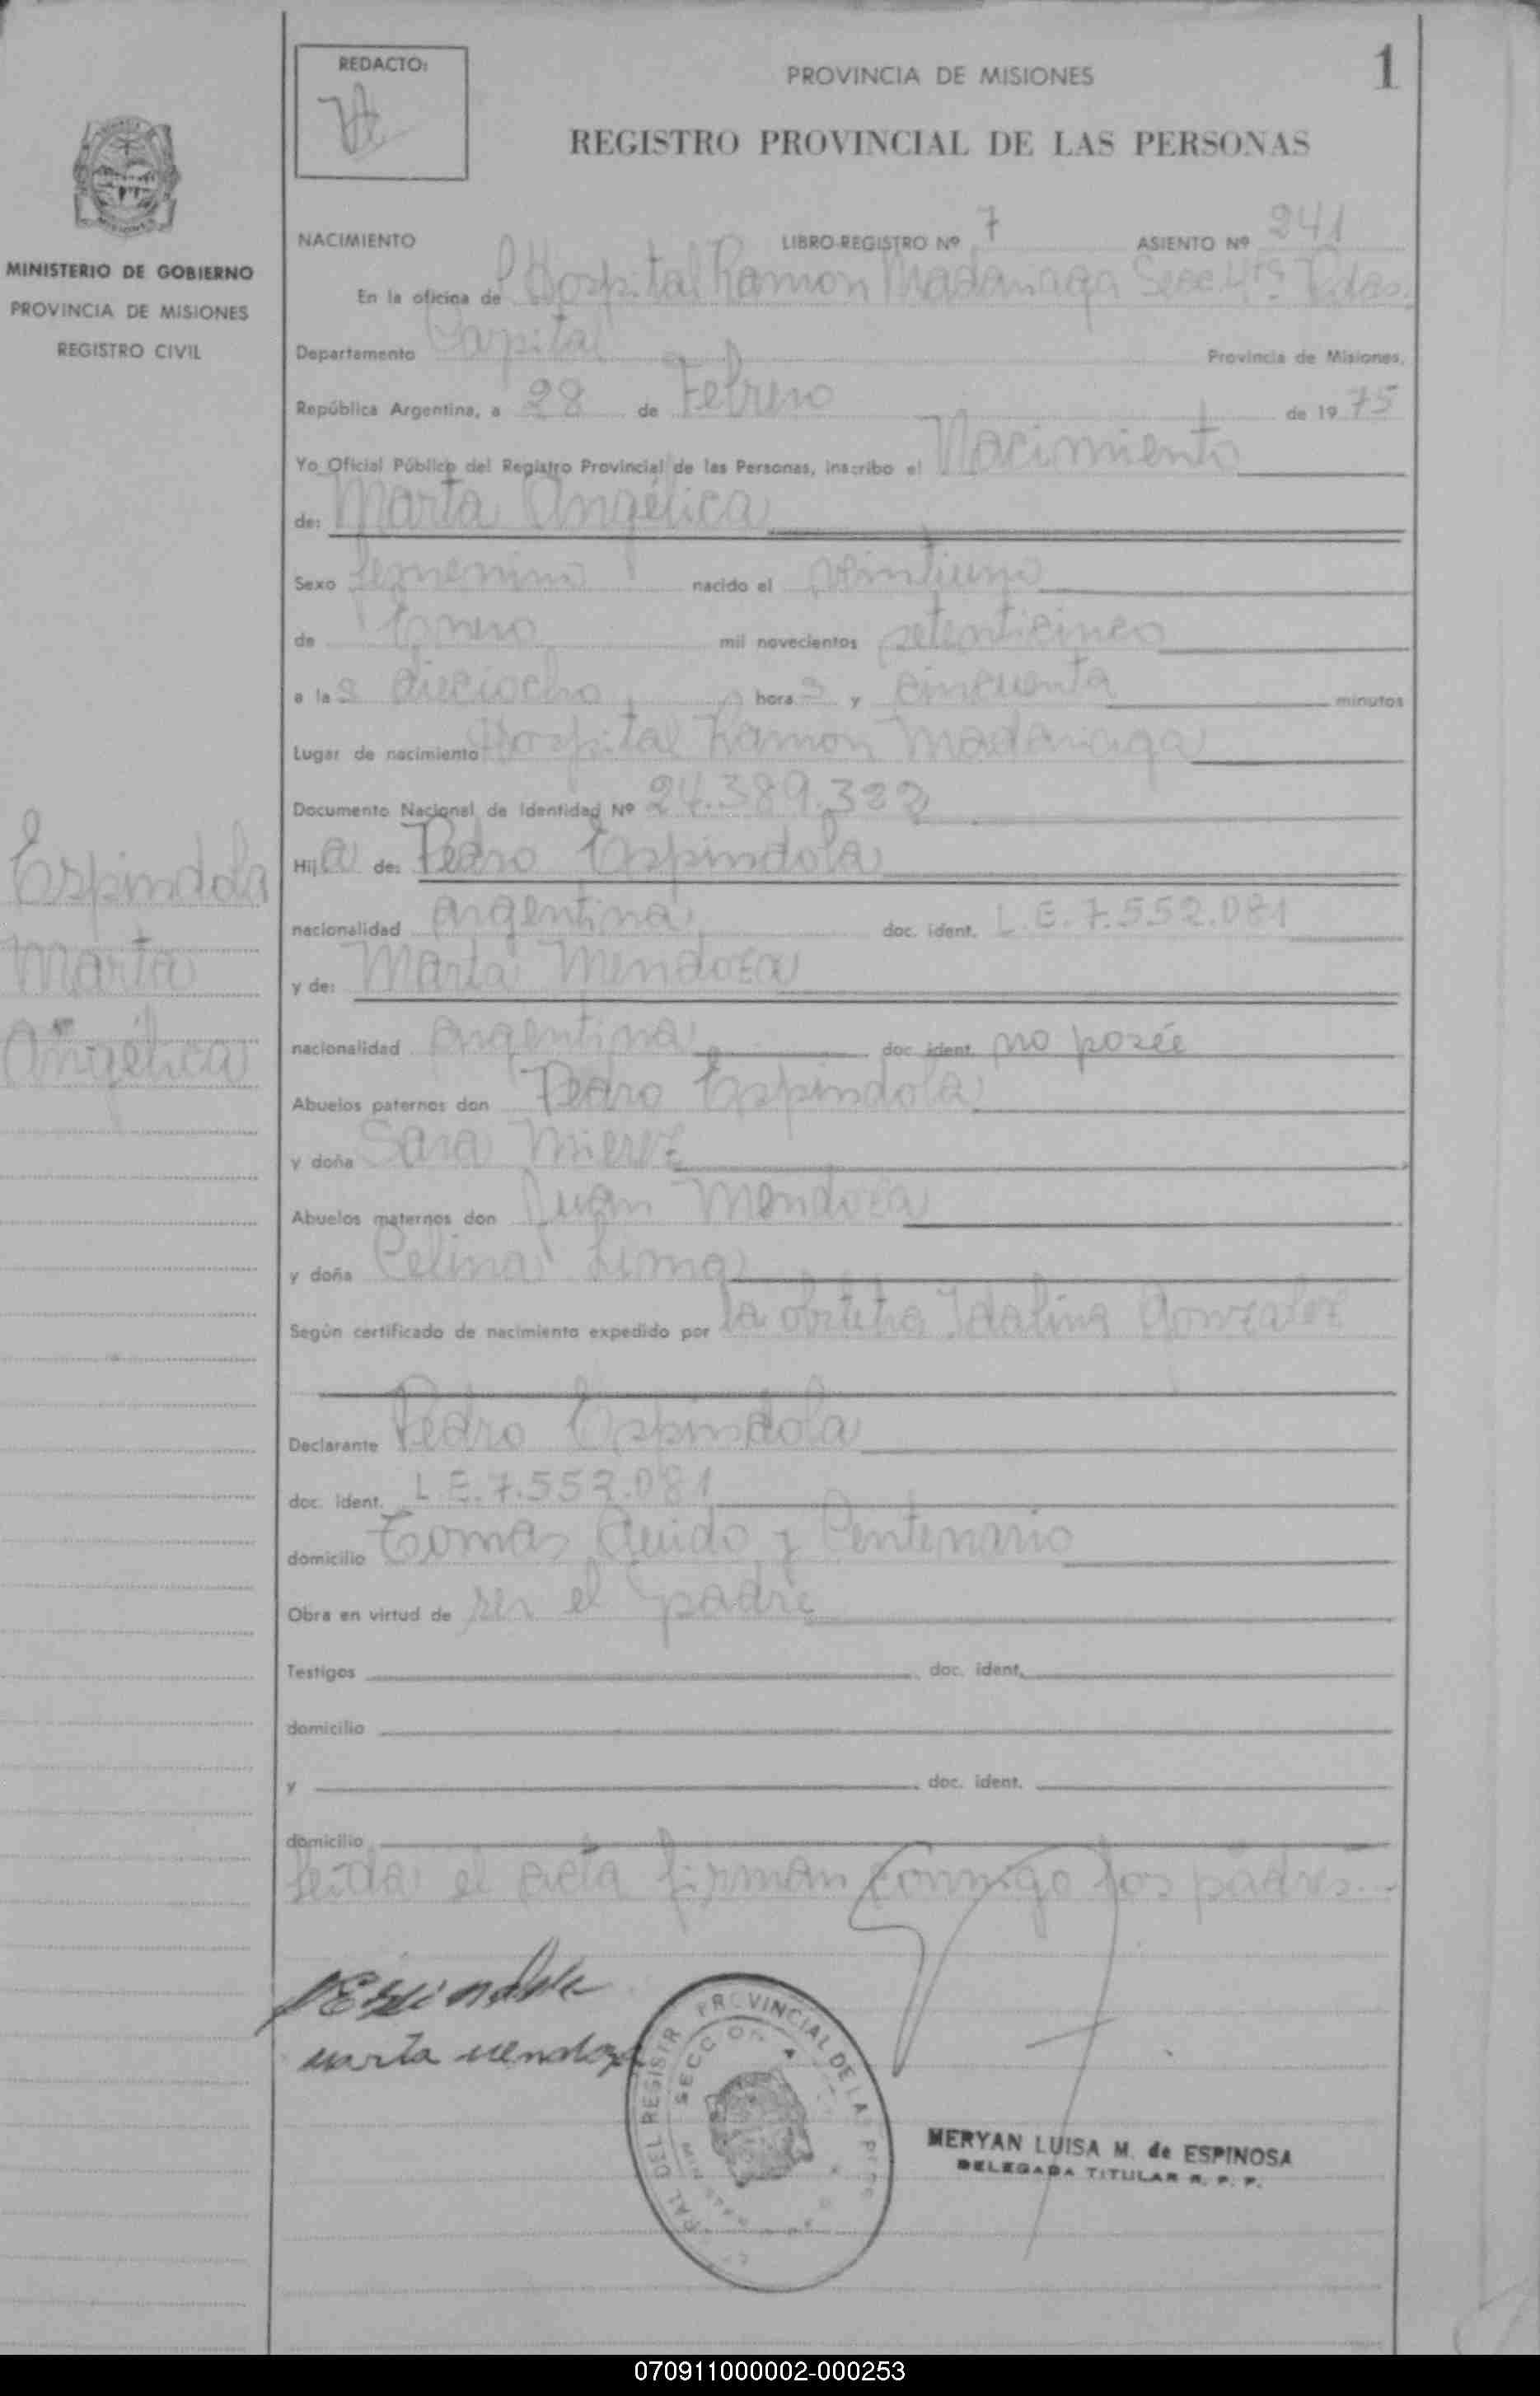 REDACTO:
PROVINCIA DE MISIONES
1
REGISTRO PROVINCIAL DE LAS PERSONAS
MINISTERIO DE GOBIERNO
PROVINCIA DE MISIONES
REGISTRO CIVIL
NACIMIENTO LIBRO-REGISTRO Nº 7 ASIENTO Nº 241
En la oficina de Hospital Ramon Madariaga Secc. 4ta Pdas.
Departamento Capital Provincia de Misiones,
República Argentina, a 28 de Febrero de 1975
Yo Oficial Público del Registro Provincial de las Personas, inscribo el Nacimiento
de: Marta Angélica
Sexo femenino nacido el veintiuno
de Enero mil novecientos setenticinco
a las dieciocho horas y cincuenta minutos
Lugar de nacimiento Hospital Ramon Madariaga
Documento Nacional de Identidad Nº 24.389.322
Hija de: Pedro Espindola
nacionalidad argentina doc. ident. L.E. 7.552.081
y de: Marta Mendoza
nacionalidad argentina doc. ident. no posée
Abuelos paternos don Pedro Espindola
y doña Sara Mierez
Abuelos maternos don Juan Mendoza
y doña Celina Lima
Según certificado de nacimiento expedido por la obstetra Idalina Gonzalez
Declarante Pedro Espindola
doc. ident. L E. 7.552.081
domicilio Tomas Guido y Centenario
Obra en virtud de ser el padre
Testigos doc. ident.
domicilio
y doc. ident.
domicilio
Leida el acta firman conmigo los padres.-
Espindola
Marta
Angélica
P Espindola
marta mendoza
PROVINCIAL DE LAS
SECCION
MERYAN LUISA M. de ESPINOSA
DELEGADA TITULAR R. P. P.
070911000002-000253